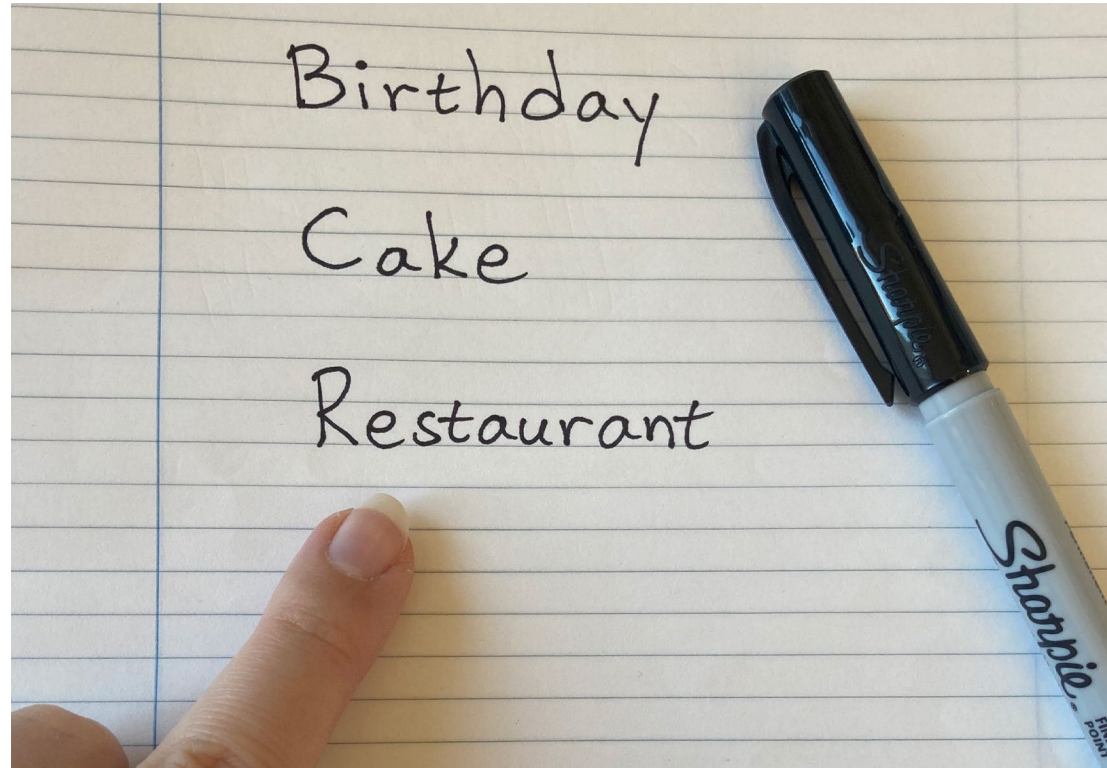 Birthday
Cake
Restaurant
Sharpie
Sharpie
FINE
POINT